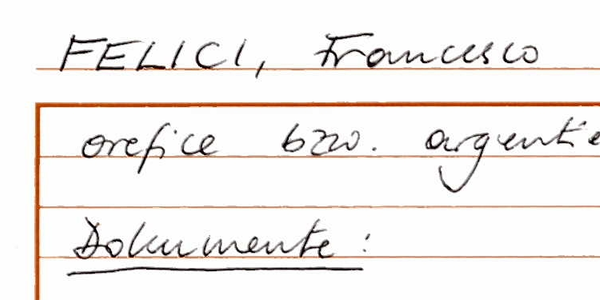 FELICI, Francesco
orefice bzw. argentie
Dokumente: